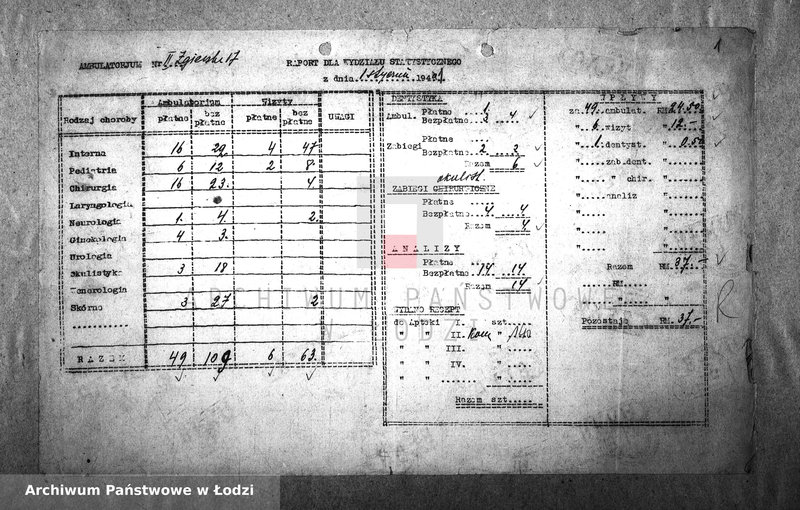 1
AMBULATORJUM Nr II, Zgierska 17
RAPORT DLA WYDZIAŁU STATYSTYCZNEGO
z dnia 1 stycznia 194
Rodzaj choroby
Ambulatorium
Wizyty
UWAGI
płatne
bez płatne
płatne
bez płatne
Interna 16 29 4 47
Pediatria 6 12 2 8
Chirurgia 16 23 4
Laryngologia
Neurologia 1 4 2
Ginekologia 4 3
Urologia
Okulistyka 3 18
Wenerologia
Skórne 3 27 2
RAZEM 49 109 6 63
DENTYSTYKA
Ambul. Płatne 1
Bezpłatne 3 4
Zabiegi Płatne
Bezpłatne 2 2
Razem 6
ZABIEGI CHIRURGICZNE
Płatne
Bezpłatne 4 4
Razem 4
ANALIZY
Płatne
Bezpłatne 14 14
Razem 14
RECEPT
do Apteki I. szt.
" " II. " 140
" " III. "
" " IV. "
" " "
Razem szt.
WPŁYWY
za 49 ambulat. RM 24.50
" 6 wizyt " 12.-
" 1 dentyst. " 0.50
" zab.dent. "
" " chir. "
" analiz "
" "
" "
" "
Razem RM. 37.-
RM
"
Pozostaje RM. 37.-
R
ARCHIWUM PAŃSTWOWE
W ŁODZI
Archiwum Państwowe w Łodzi